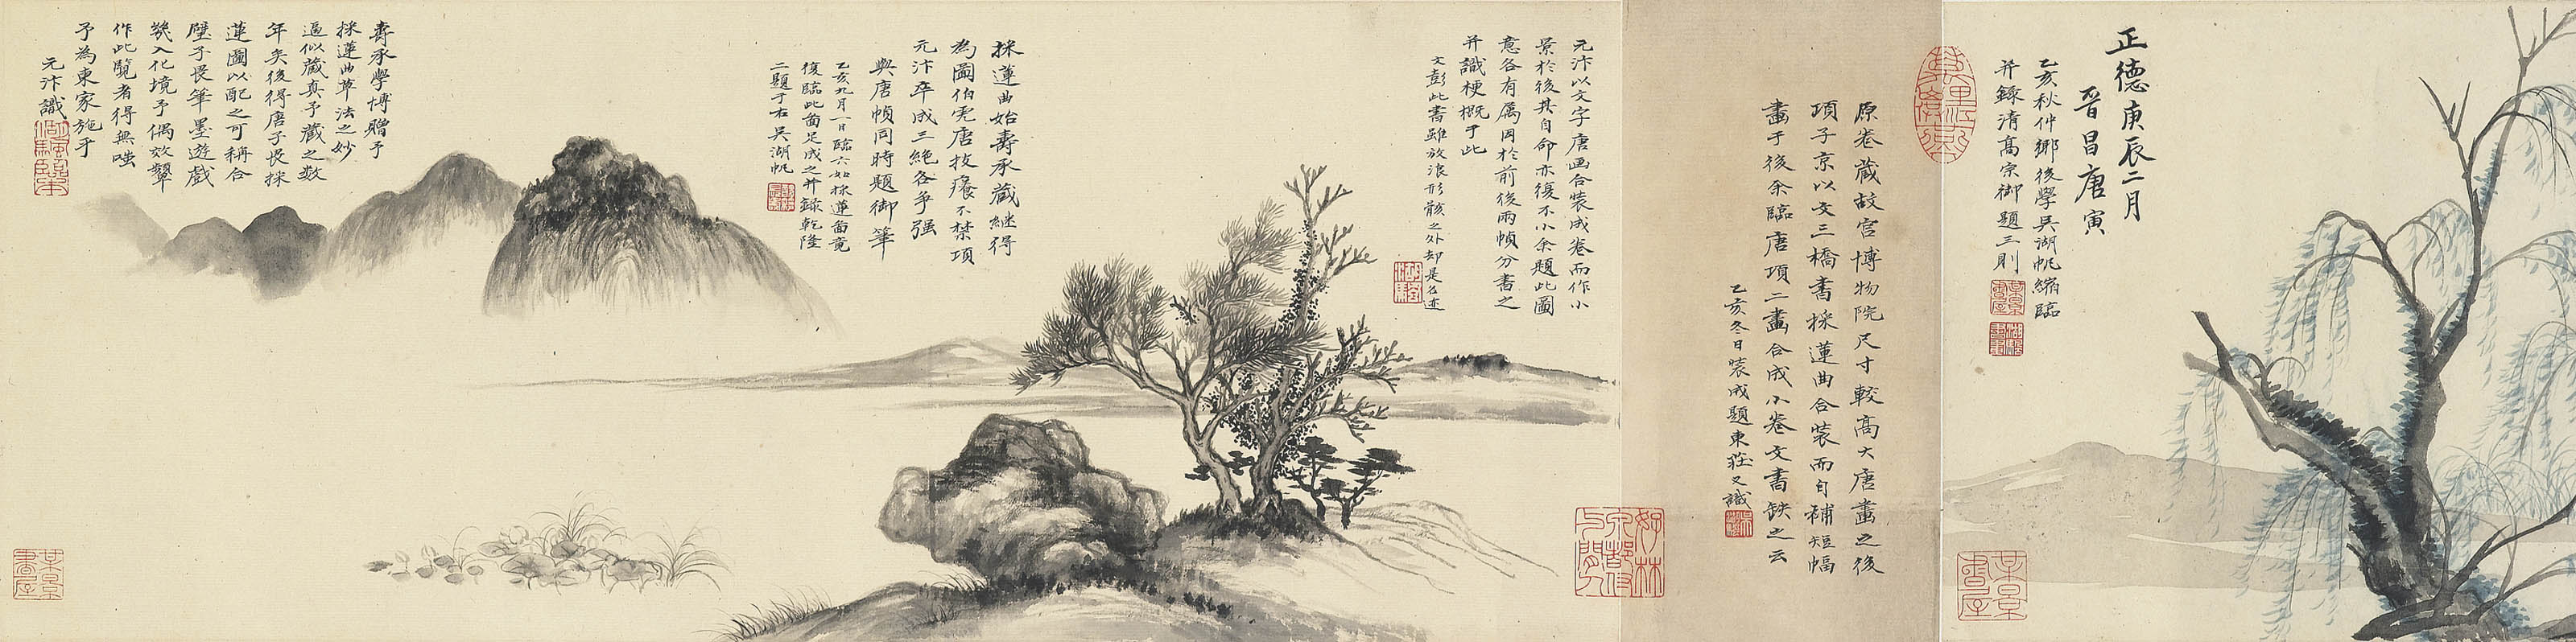 正德庚辰二月
晉昌唐寅
乙亥秋仲鄉後學吳湖帆縮臨
并錄清高宗御題三則
原卷藏故宮博物院尺寸較高大唐畫之後
項子京以文三橋書採蓮曲合裝而自補短幅
畫于後余臨唐項二畫合成小卷文書缺之云
乙亥冬日裝成題東莊又識
元汴以文字唐画合裝成卷而作小
景於後其自命亦復不小余題此圖
意各有屬因於前後兩幀分書之
并識梗概于此
文彭此書雖放浪形骸之外却是名迹
採蓮曲始壽承藏繼得
為圖伯虎唐技癢不禁項
元汴卒成三絕各爭强
與唐幀同時題御筆
乙亥九月一日臨六如採蓮圖竟
復臨此啚足成之并錄乾隆
二題于右吳湖帆
壽承學博贈予
採蓮曲草法之妙
逼似藏真予藏之数
年矣後得唐子畏採
蓮圖以配之可稱合
璧子畏筆墨遊戲
幾入化境予偶效顰
作此覽者得無嗤
予為東家施乎
元汴識
梅景書屋